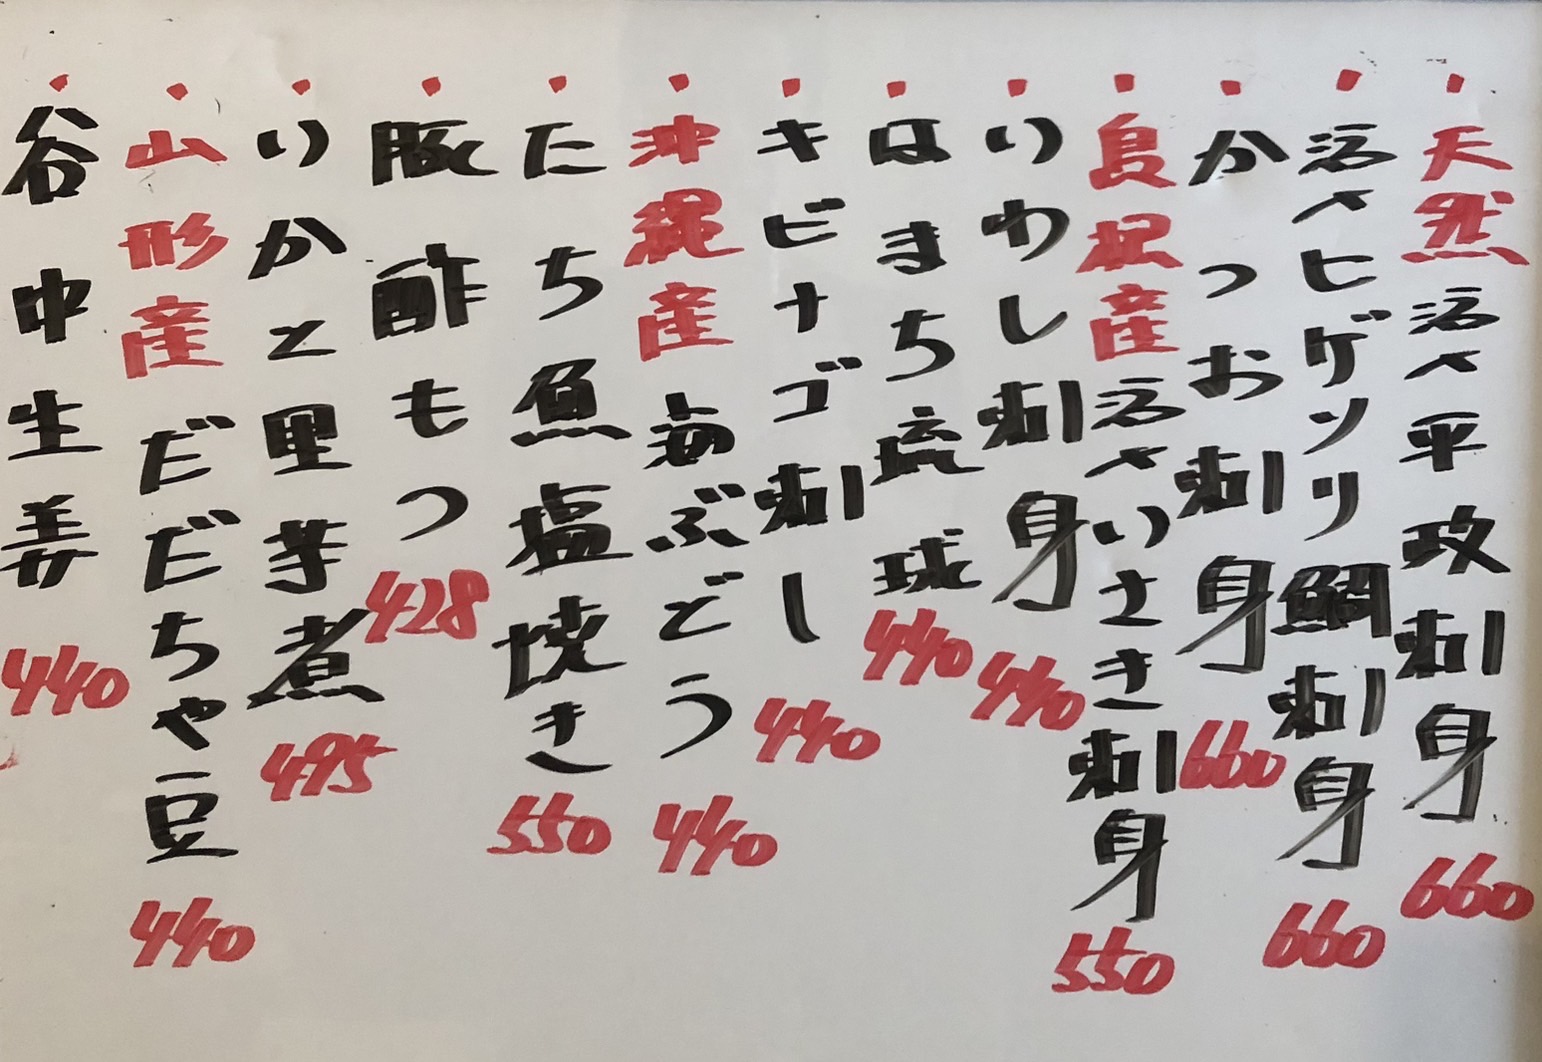 ・天然活〆平政刺身 660
・活〆ヒゲソリ鯛刺身 660
・かつお刺身 660
・島根産活〆いさき刺身 550
・いわし刺身 440
・はまち琉球 440
・キビナゴ刺し 440
・沖縄産海ぶどう 440
・たち魚塩焼き 550
・豚酢もつ 428
・いかと里芋煮 495
・山形産だだちゃ豆 440
・谷中生姜 440